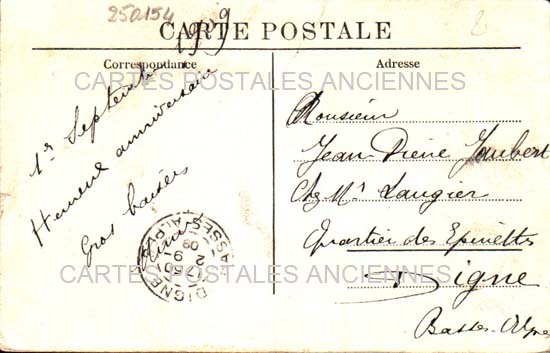 250154
CARTE POSTALE
Correspondance
Adresse
1er Septembre 1909
Heureux anniversaire
Gros baisers
Monsieur
Jean Pierre Jaubert
Chez Mr Laugier
Quartier des Epinettes
Digne
Basses-Alpes
DIGNE
BASSES ALPES
2 - 9
09
CARTES POSTALES ANCIENNES
CARTES POSTALES ANCIENNES
2